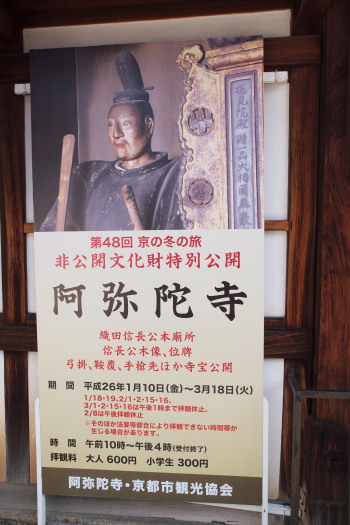 惣見院殿贈一品大相國泰巌
第48回 京の冬の旅
非公開文化財特別公開
阿弥陀寺
織田信長公本廟所
信長公木像、位牌
弓掛、鞍覆、手槍先ほか寺宝公開
期 間 平成26年1月10日(金)〜3月18日(火)
1/18・19、2/1・2・15・16、
3/1・2・15・16は午後1時まで拝観休止、
2/8は午後拝観休止
※そのほか法要等都合により拝観できない時間帯が
生じる場合があります。
時 間 午前10時〜午後4時(受付終了)
拝観料 大人 600円 小学生 300円
阿弥陀寺・京都市観光協会